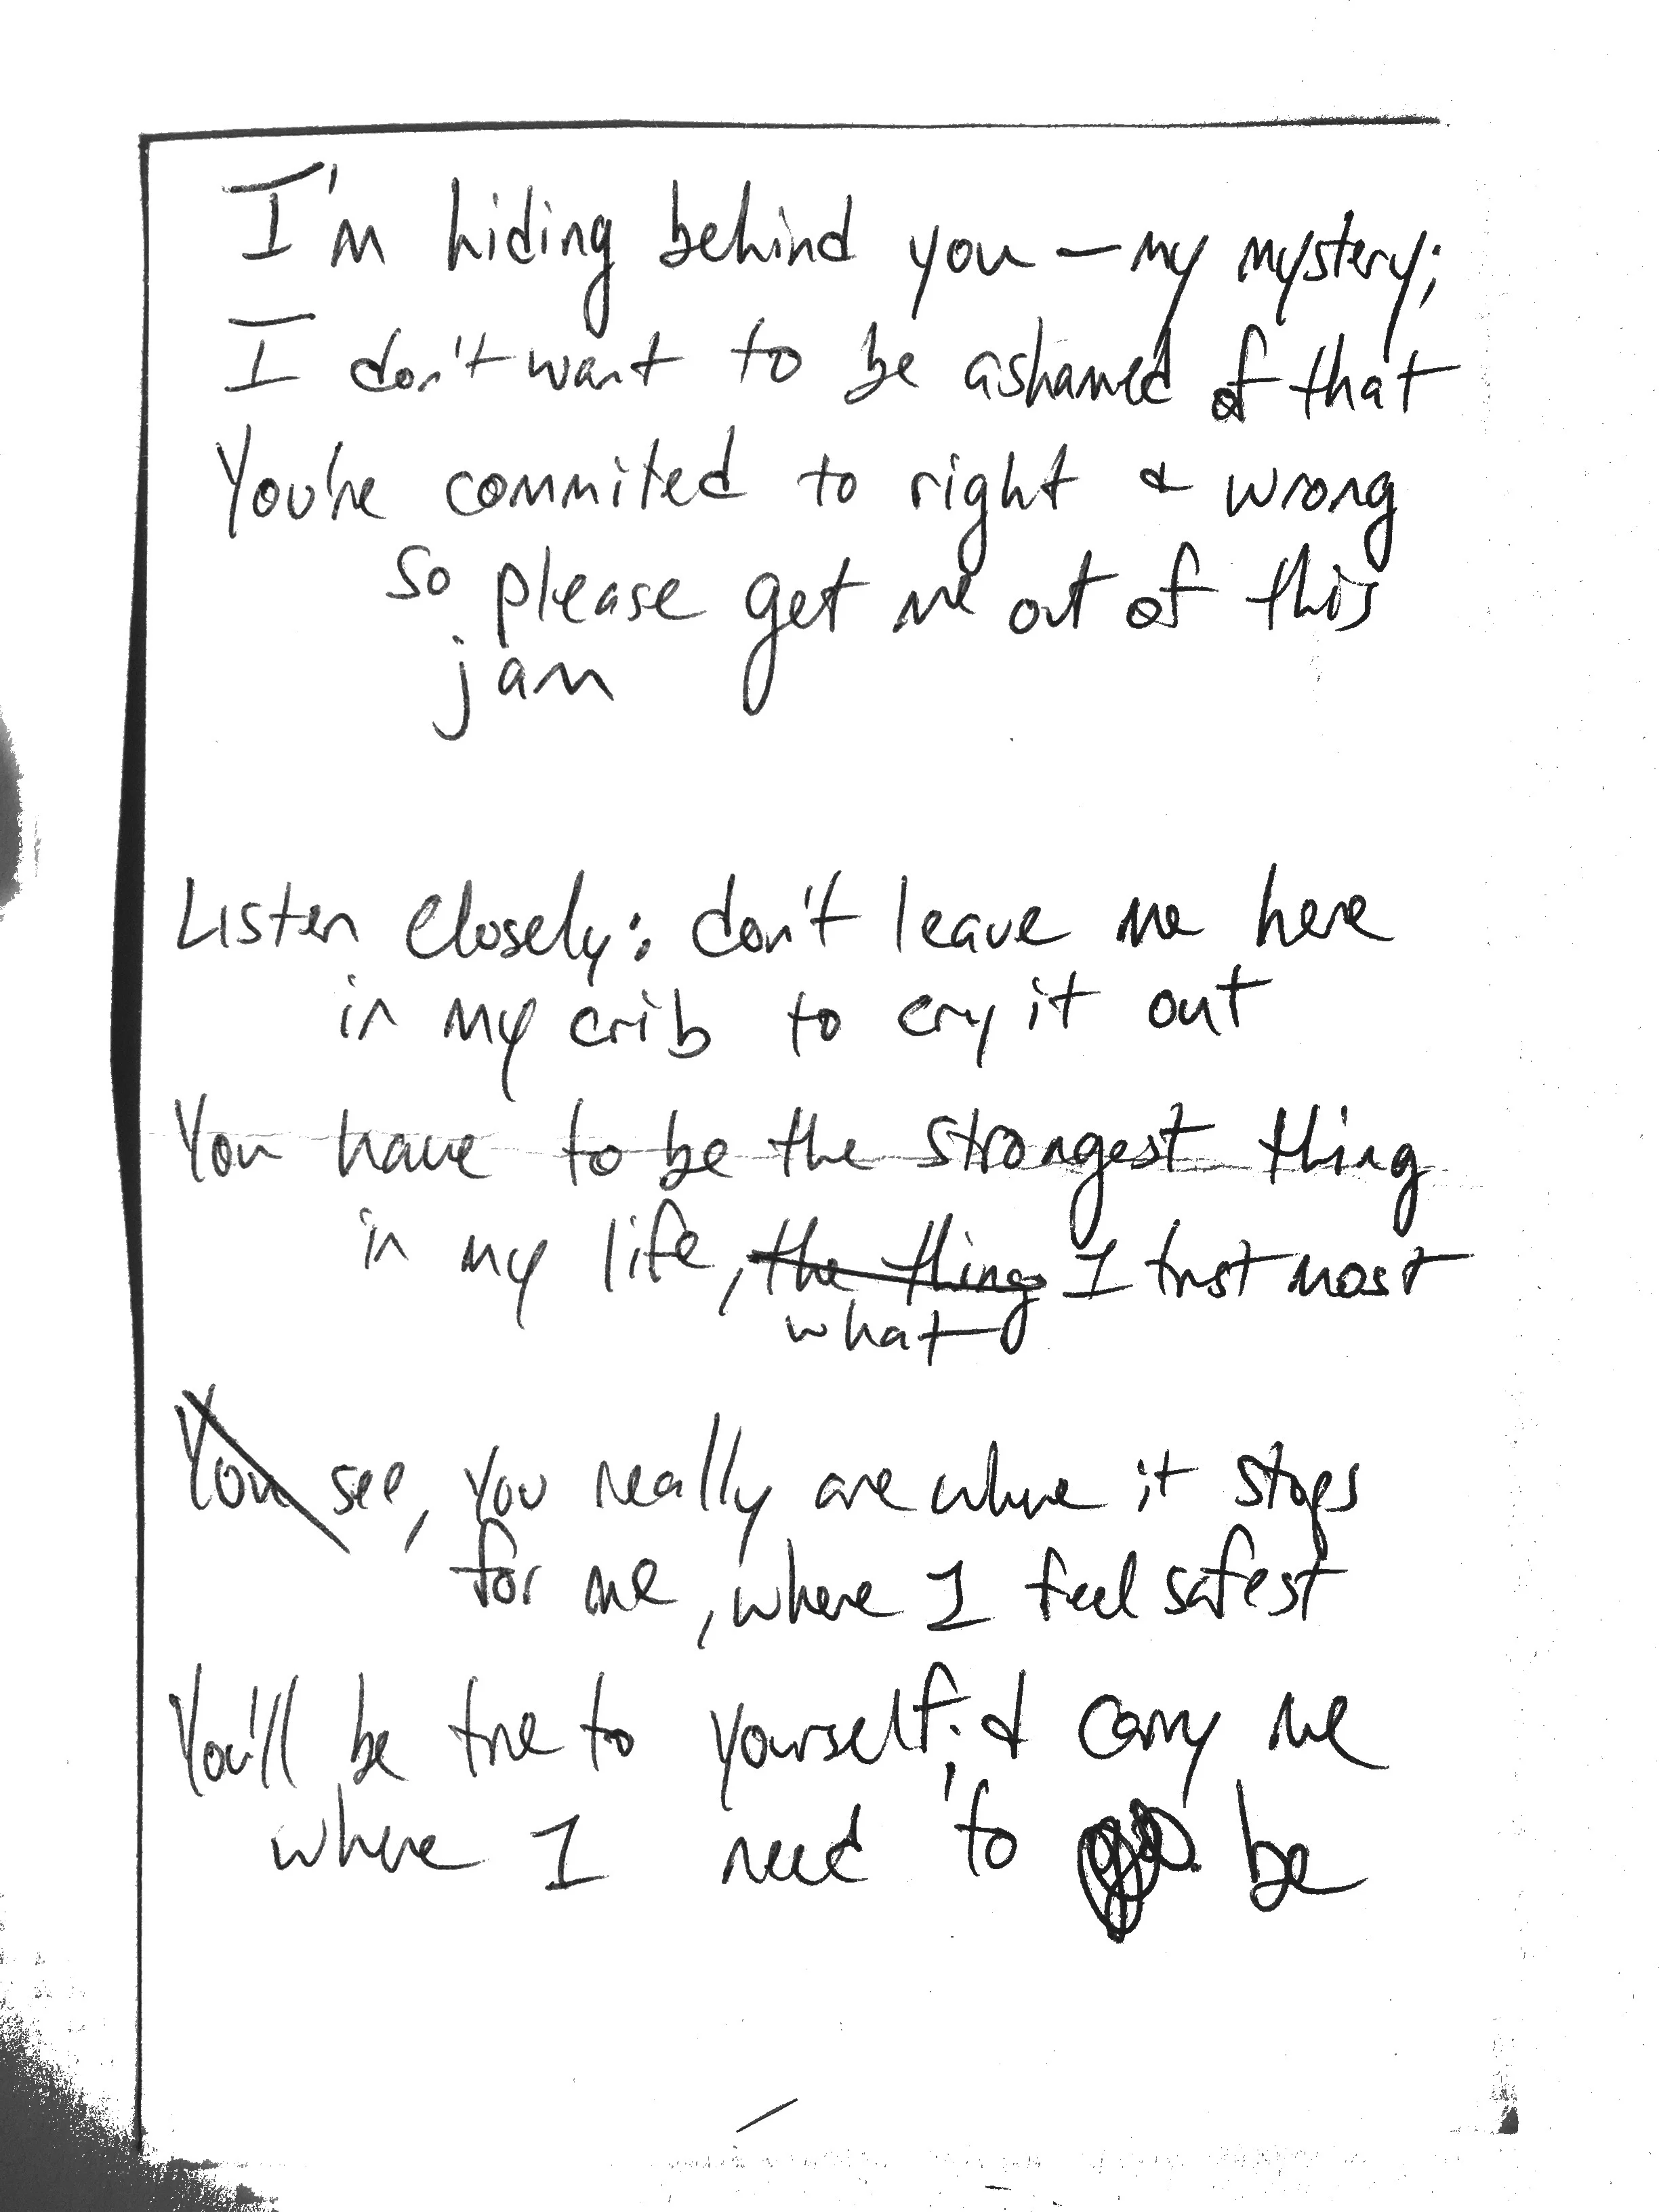 I'm hiding behind you – my mystery;
I don't want to be ashamed of that
You're commited to right & wrong
so please get me out of this
jam
Listen closely: don't leave me here
in my crib to cry it out
You have to be the strongest thing
in my life, the thing I trust most
what
You see, you really are where it stops
for me, where I feel safest
You'll be true to yourself; & carry me
where I need to be